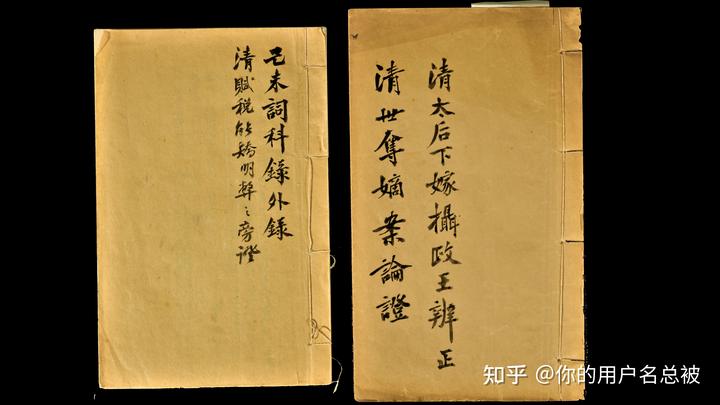 己未詞科錄外錄
清賦稅能矯明弊之旁證
清太后下嫁攝政王辨正
清世奪嫡案論證
知乎 @你的用户名总被